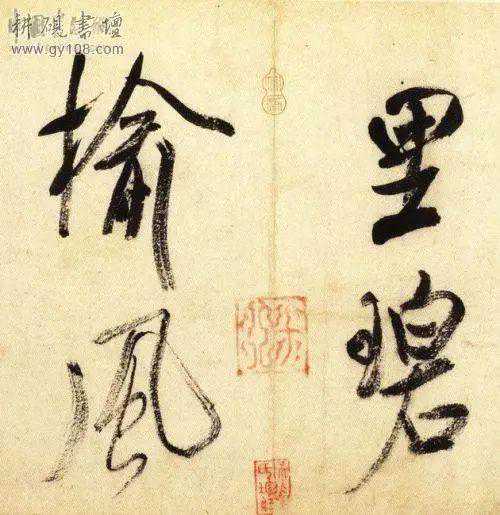 耕硯書壇
www.gy108.com
里碧
榆風